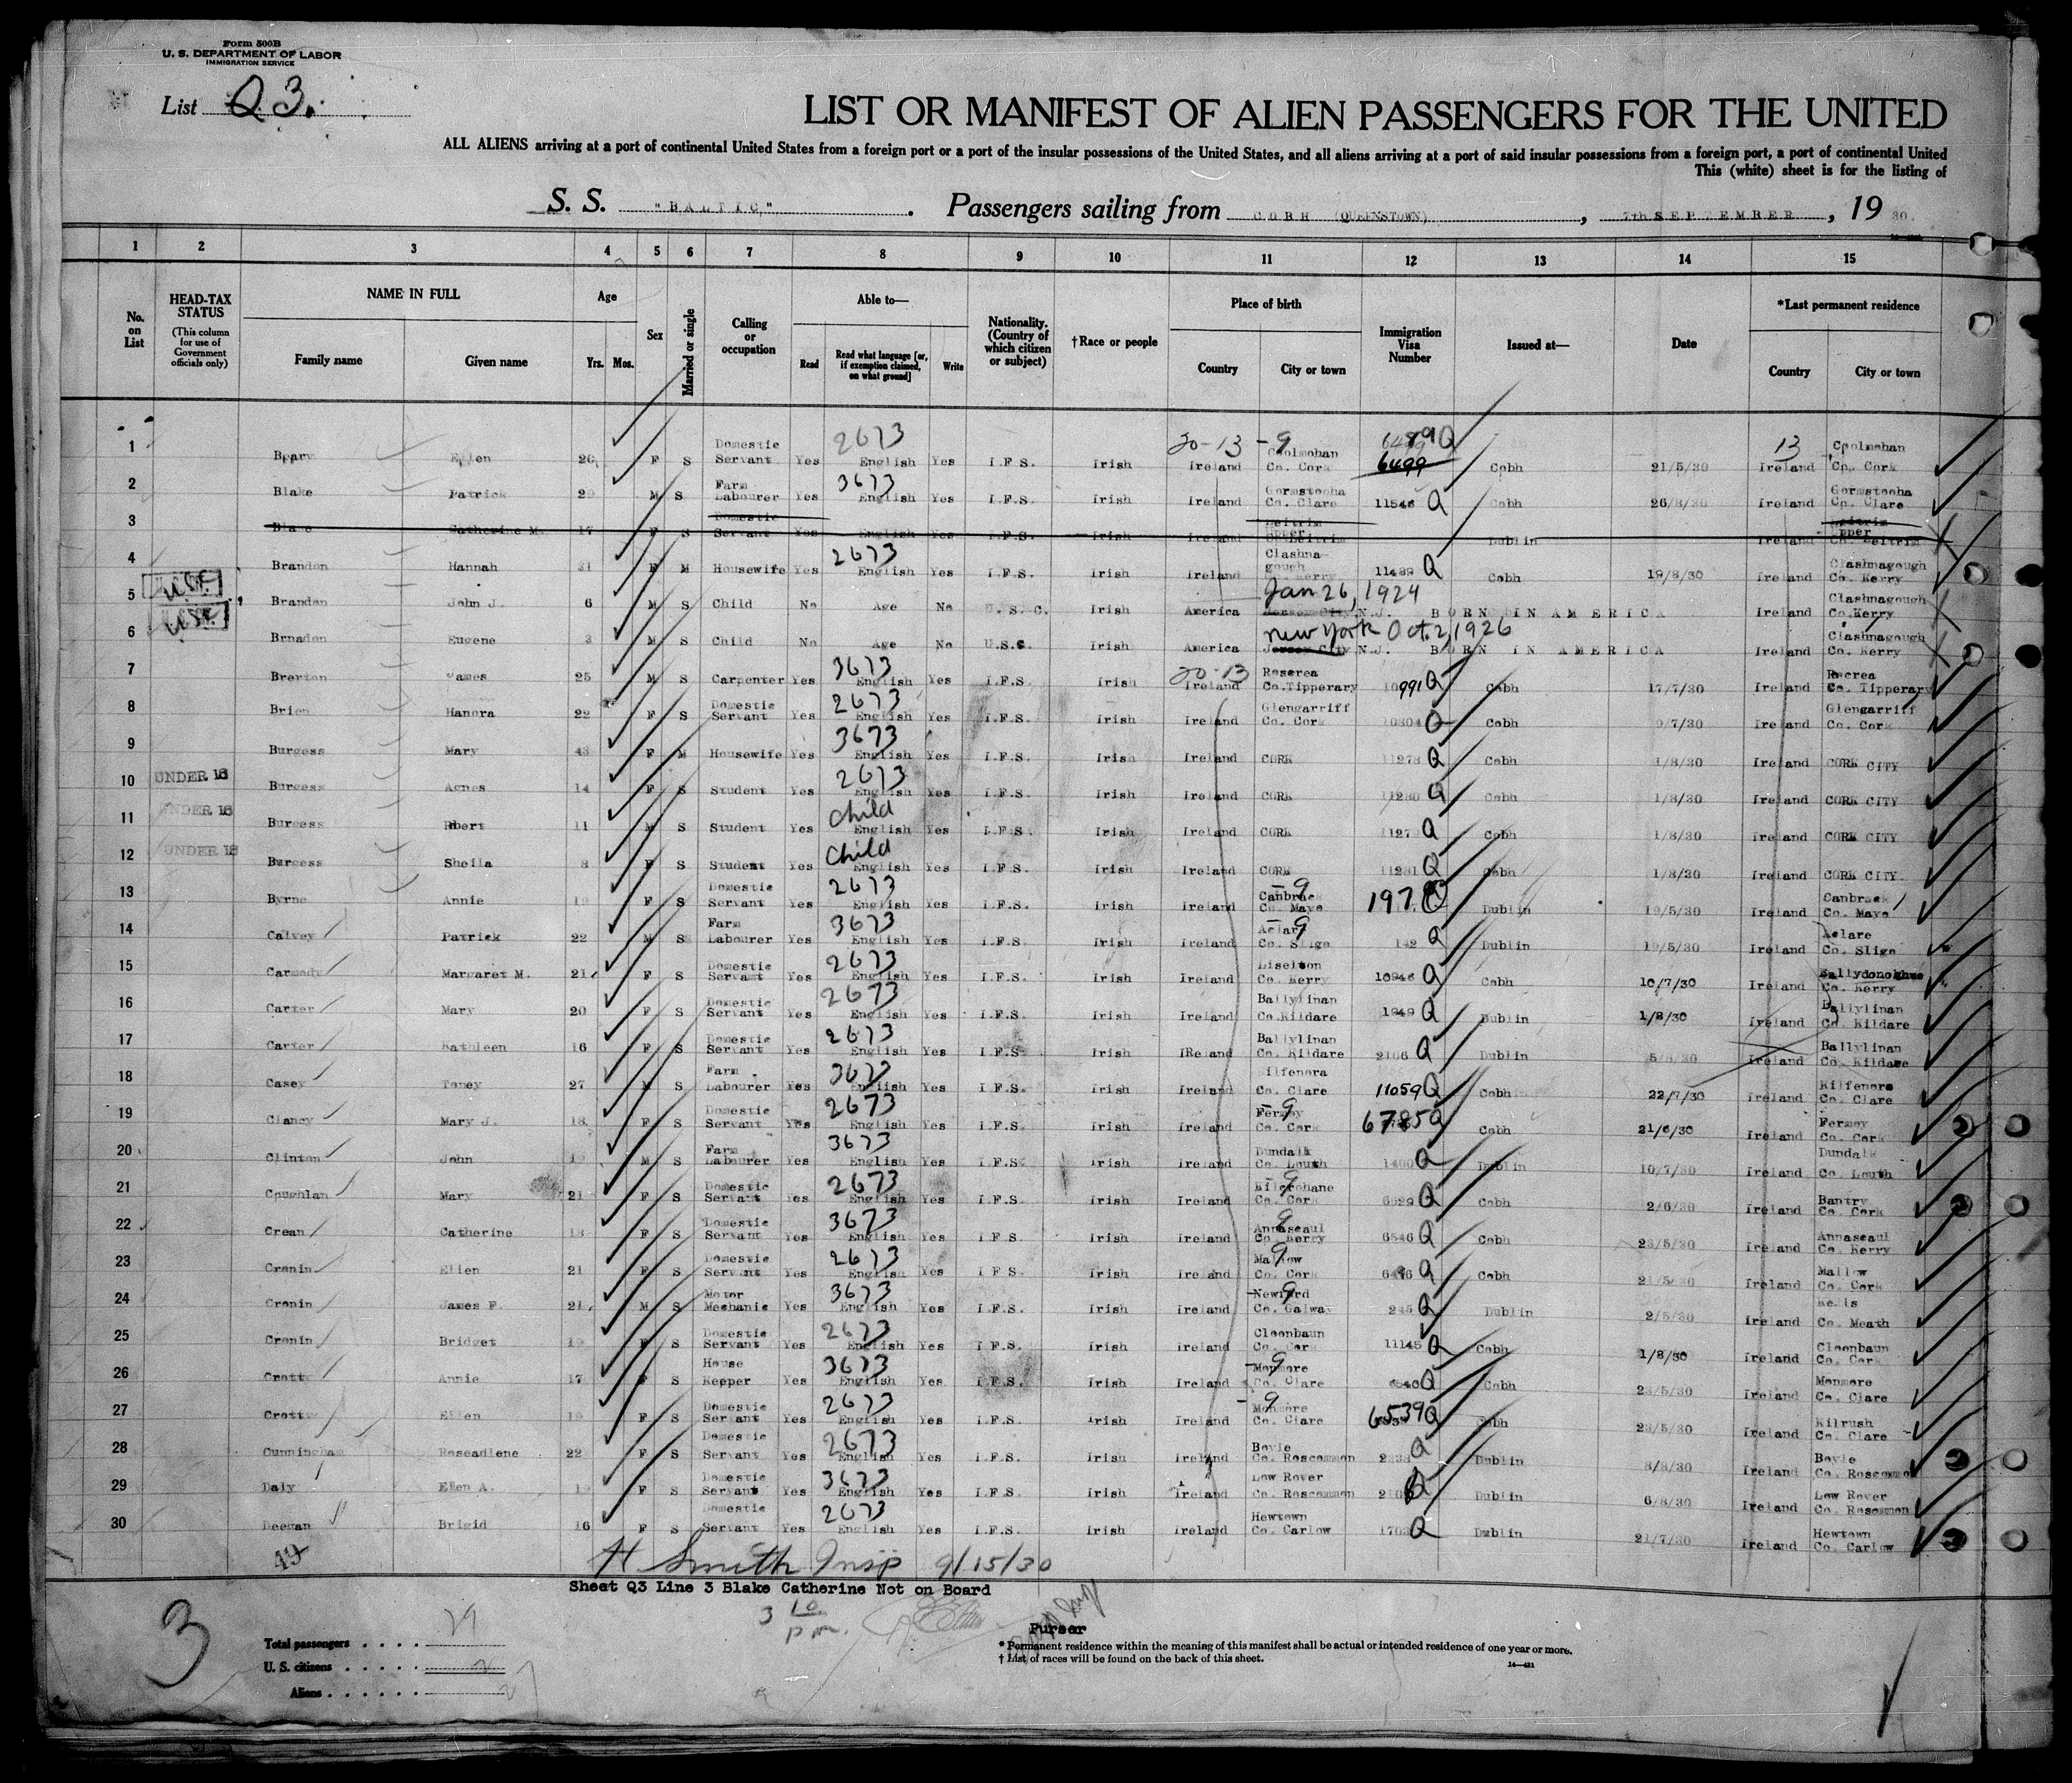 Form 500B
U. S. DEPARTMENT OF LABOR
IMMIGRATION SERVICE
List Q3.
LIST OR MANIFEST OF ALIEN PASSENGERS FOR THE UNITED
ALL ALIENS arriving at a port of continental United States from a foreign port or a port of the insular possessions of the United States, and all aliens arriving at a port of said insular possessions from a foreign port, a port of continental United
This (white) sheet is for the listing of
S. S. "BALTIC". Passengers sailing from COBH (QUEENSTOWN), 7th SEPTEMBER, 19 30.
1 2 3 4 5 6 7 8 9 10 11 12 13 14 15
No. on List HEAD-TAX STATUS (This column for use of Government officials only) NAME IN FULL Family name Given name Age Yrs. Mos. Sex Married or single Calling or occupation Able to— Read Read what language [or, if exemption claimed, on what ground] Write Nationality. (Country of which citizen or subject) †Race or people Place of birth Country City or town Immigration Visa Number Issued at— Date *Last permanent residence Country City or town
1 Ellen 26 F S Domestic Servant Yes 2673 English Yes I.F.S. Irish 20-13 -9 Ireland Coolmohan Co. Cork 6499 Cobh 21/5/30 13 Ireland Coolmohan Co. Cork
2 Blake Patrick 29 M S Farm Labourer Yes 3673 English Yes I.F.S. Irish Ireland Co. Clare 11546 Q Cobh 26/8/30 Ireland Co. Clare
3 Blake Catherine M. 17 F S Domestic Servant Yes English Yes I.F.S. Irish Ireland Co. Leitrim Dublin Ireland Co. Leitrim
4 Brandon Hannah 31 F M Housewife Yes 2673 English Yes I.F.S. Irish Ireland Clashnagough Co. Kerry 11489 Q Cobh 19/8/30 Ireland Clashnagough Co. Kerry
5 USC Brandon John J. 6 M S Child No Age No U.S.C. Irish America Jan 26, 1924 Jersey City N.J. BORN IN AMERICA Ireland Clashnagough Co. Kerry
6 USC Brnadon Eugene 3 M S Child No Age No U.S.C. Irish America New York Oct. 2, 1926 Jersey City N.J. BORN IN AMERICA Ireland Clashnagough Co. Kerry
7 James 25 M S Carpenter Yes 3673 English Yes I.F.S. Irish 20-13 Ireland Roscrea Co. Tipperary 10991 Q Cobh 17/7/30 Ireland Co. Tipperary
8 Brien Hanora 22 F S Domestic Servant Yes 2673 English Yes I.F.S. Irish Ireland Glengarriff Co. Cork 10804 Q Cobh 9/7/30 Ireland Glengarriff Co. Cork
9 Burgess Mary 43 F M Housewife Yes 3673 English Yes I.F.S. Irish Ireland CORK 11278 Q Cobh 1/8/30 Ireland CORK CITY
10 UNDER 16 Burgess Agnes 14 F S Student Yes 2673 English Yes I.F.S. Irish Ireland CORK 11280 Q Cobh 1/8/30 Ireland CORK CITY
11 UNDER 16 Burgess Rbert 11 M S Student Yes Child English Yes I.F.S. Irish Ireland CORK 1127 Q Cobh 1/8/30 Ireland CORK CITY
12 UNDER 16 Burgess Sheila 8 F S Student Yes Child English Yes I.F.S. Irish Ireland CORK 11281 Q Cobh 1/8/30 Ireland CORK CITY.
13 Byrne Annie F S Domestic Servant Yes 2673 English Yes I.F.S. Irish Ireland -9 Co. Mayo 197 Q Dublin 19/5/30 Ireland Co. Mayo
14 Calvey Patrick 22 M S Farm Labourer Yes 3673 English Yes I.F.S. Irish Ireland -9 Aclare Co. Sligo 142 Q Dublin 19/5/30 Ireland Aclare Co. Sligo
15 Carmody Margaret M. 21 F S Domestic Servant Yes 2673 English Yes I.F.S. Irish Ireland Liselton Co. Kerry 10946 Q Cobh 10/7/30 Ireland Ballydonoghue Co. Kerry
16 Carter Mary 20 F S Domestic Servant Yes 2673 English Yes I.F.S. Irish Ireland Ballylinan Co. Kildare 1949 Q Dublin 1/8/30 Ireland Ballylinan Co. Kildare
17 Carter Kathleen 16 F S Domestic Servant Yes 2673 English Yes I.F.S. Irish IReland Ballylinan Co. Kildare 2106 Q Dublin 5/8/30 Ireland Ballylinan Co. Kildare
18 Casey 27 M S Farm Labourer Yes 3673 English Yes I.F.S. Irish Ireland Kilfenora Co. Clare 11059 Q Cobh 22/7/30 Ireland Kilfenora Co. Clare
19 Clancy Mary J. 18 F S Domestic Servant Yes 2673 English Yes I.F.S. Irish Ireland -9 Fermoy Co. Cork 6785 Q Cobh 21/6/30 Ireland Fermoy Co. Cork
20 Clinton John M S Farm Labourer Yes 3673 English Yes I.F.S. Irish Ireland Dundalk Co. Louth 1400 Q Dublin 10/7/30 Ireland Dundalk Co. Louth
21 Coughlan Mary 21 F S Domestic Servant Yes 2673 English Yes I.F.S. Irish Ireland Kilcrohane Co. Cork 6629 Q Cobh 2/6/30 Ireland Bantry Co. Cork
22 Crean Catherine 18 F S Domestic Servant Yes 3673 English Yes I.F.S. Irish Ireland 9 Annascaul Co. Kerry 6546 Q Cobh 23/5/30 Ireland Annascaul Co. Kerry
23 Cronin Ellen 21 F S Domestic Servant Yes 2673 English Yes I F S. Irish Ireland 9 Mallow Co. Cork Q Cobh 21/5/30 Ireland Mallow Co. Cork
24 Cronin James F. 21 M S Motor Mechanic Yes 3673 English Yes I.F.S. Irish Ireland 9 Co. Galway 245 Q Dublin 2/5/30 Ireland Kells Co. Meath
25 Cronin Bridget 19 F S Domestic Servant Yes 2673 English Yes I.F.S. Irish Ireland Cloonbaun Co. Cork 11145 Q Cobh 1/8/30 Ireland Cloonbaun Co. Cork
26 Crotty Annie 17 F S House Keeper Yes 3673 English Yes I.F.S. Irish Ireland -9 Monmore Co. Clare 6540 Q Cobh 23/5/30 Ireland Monmore Co. Clare
27 Crotty Ellen 19 F S Domestic Servant Yes 2673 English Yes I.F.S. Irish Ireland -9 Monmore Co. Clare 6539 Q Cobh 23/5/30 Ireland Kilrush Co. Clare
28 Cunningham Roseadlene 22 F S Domestic Servant Yes 2673 English Yes I.F.S. Irish Ireland Boyle Co. Roscommon Q Dublin 8/8/30 Ireland Boyle Co. Roscommon
29 Daly Ellen A. 19 F S Domestic Servant Yes 3673 English Yes I.F.S. Irish Ireland Low Rover Co. Roscommon Q Dublin 6/8/30 Ireland Low Rover Co. Roscommon
30 Deegan Brigid 16 F S Domestic Servant Yes 2673 English Yes I.F.S. Irish Ireland Hewtown Co. Carlow Q Dublin 21/7/30 Ireland Hewtown Co. Carlow
H Smith Insp 9/15/30
Sheet Q3 Line 3 Blake Catherine Not on Board
3 10 pm.
3
Purser
Total passengers . . . . 29
U. S. citizens . . . . . 2
Aliens . . . . . . 27
* Permanent residence within the meaning of this manifest shall be actual or intended residence of one year or more.
† List of races will be found on the back of this sheet.